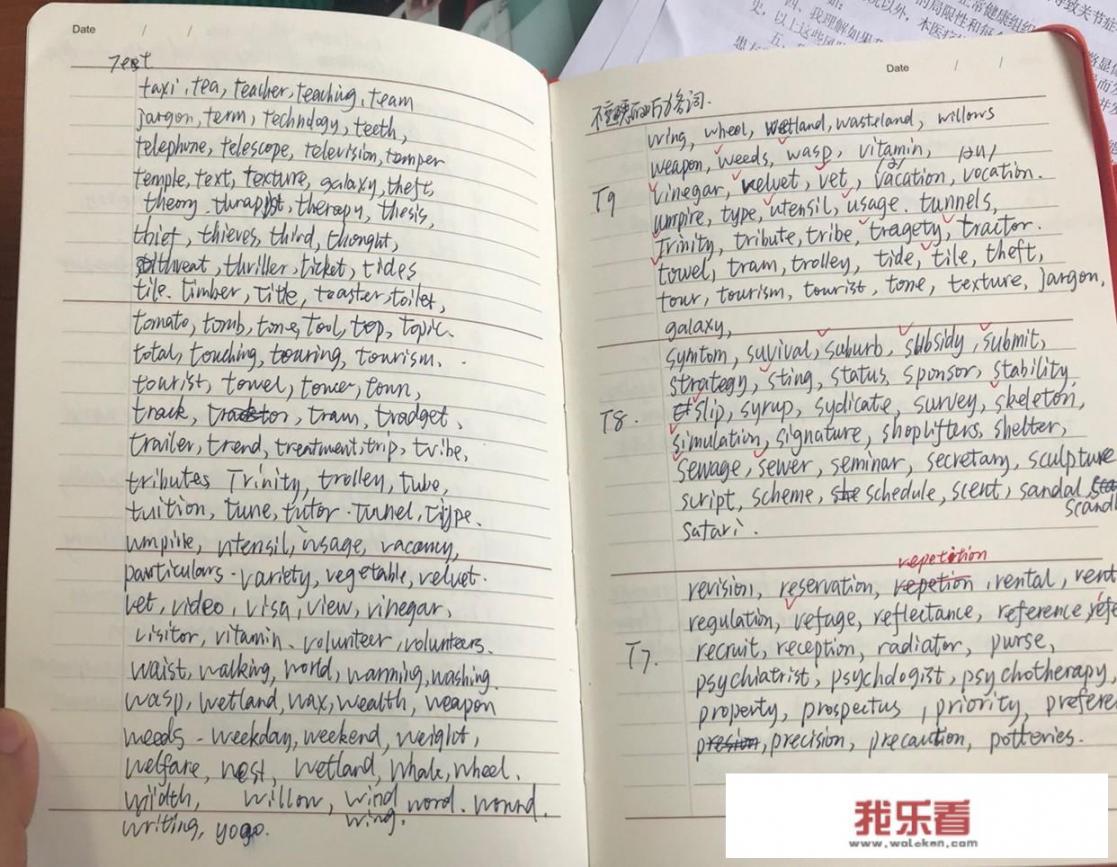 Date / /
Test
taxi, tea, teacher, teaching, team
jargon, term, technology, teeth,
telephone, telescope, television, temper
temple, text, texture, galaxy, theft
theory. therapy, thesis,
thief, thieves, third, thought,
threat, thriller, ticket, tides
tile. timber, title, toaster, toilet,
tomato, tomb, tone, tool, top, topic.
total, touching, touring, tourism.
tourist, towel, tower, town,
track, tram, tradget,
trailer, trend, treatment, trip, tribe,
tributes Trinity, trolley, tube,
tuition, tune, tutor. tunnel, type.
umpire, utensil, usage, vacancy,
particulars - variety, vegetable, velvet.
vet, video, visa, view, vinegar,
visitor, vitamin. volunteer, volunteers.
waist, walking, world, warming, washing.
wasp, wetland, wax, wealth, weapon
weeds - weekday, weekend, weight,
welfare, west, wetland, whale, wheel.
width, willow, wind word. wound.
wing.
writing, yoga.
Date / /
wing, wheel, wetland, wasteland, willows
weapon, weeds, wasp, vitamin,
T9 vinegar, velvet, vet, vacation, vocation.
umpire, type, utensil, usage. tunnels,
Trinity, tribute, tribe, tragety, tractor.
towel, tram, trolley, tide, tile, theft,
tour, tourism, tourist, tone, texture, jargon,
galaxy,
symtom, suvival, suburb, subsidy, submit,
strategy, sting, status, sponsor, stability,
T8. slip, syrup, sydicate, survey, skeleton,
simulation, signature, shoplifters, shelter,
sewage, sewer, seminar, secretary, sculpture
script, scheme, schedule, scent, sandal
safari.
repetition
revision, reservation, repetion, rental,
regulation, refuge, reflectance, reference
T7. recruit, reception, radiator, purse,
psychiatrist, psychologist, psychotherapy,
property, prospectus, priority,
presion, precision, precaution, potteries.
我乐看
www.waleken.com